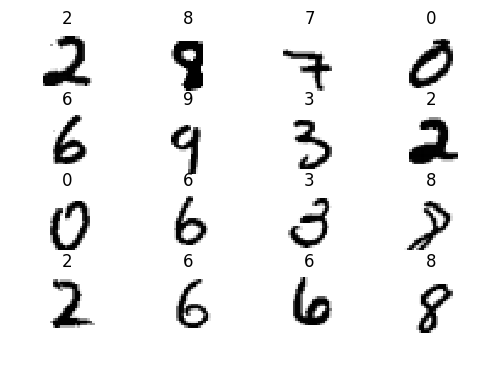 2 8 7 0
2 8 7 0
6 9 3 2
6 9 3 2
0 6 3 8
0 6 3 8
2 6 6 8
2 6 6 8